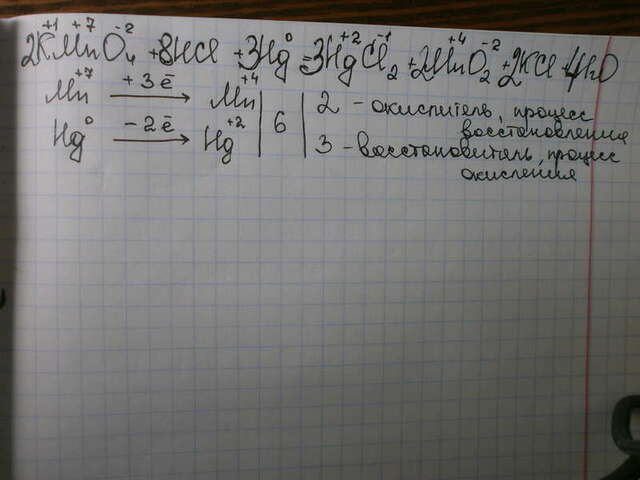 2K⁺¹Mn⁺⁷O₄⁻² + 8HCl + 3Hg⁰ = 3Hg⁺²Cl₂⁻¹ + 2Mn⁺⁴O₂⁻² + 2KCl + 4H₂O
Mn⁺⁷ +3ē → Mn⁺⁴ | 6 | 2 - окислитель, процесс
восстановления
Hg⁰ -2ē → Hg⁺² 3 - восстановитель, процесс
окисления